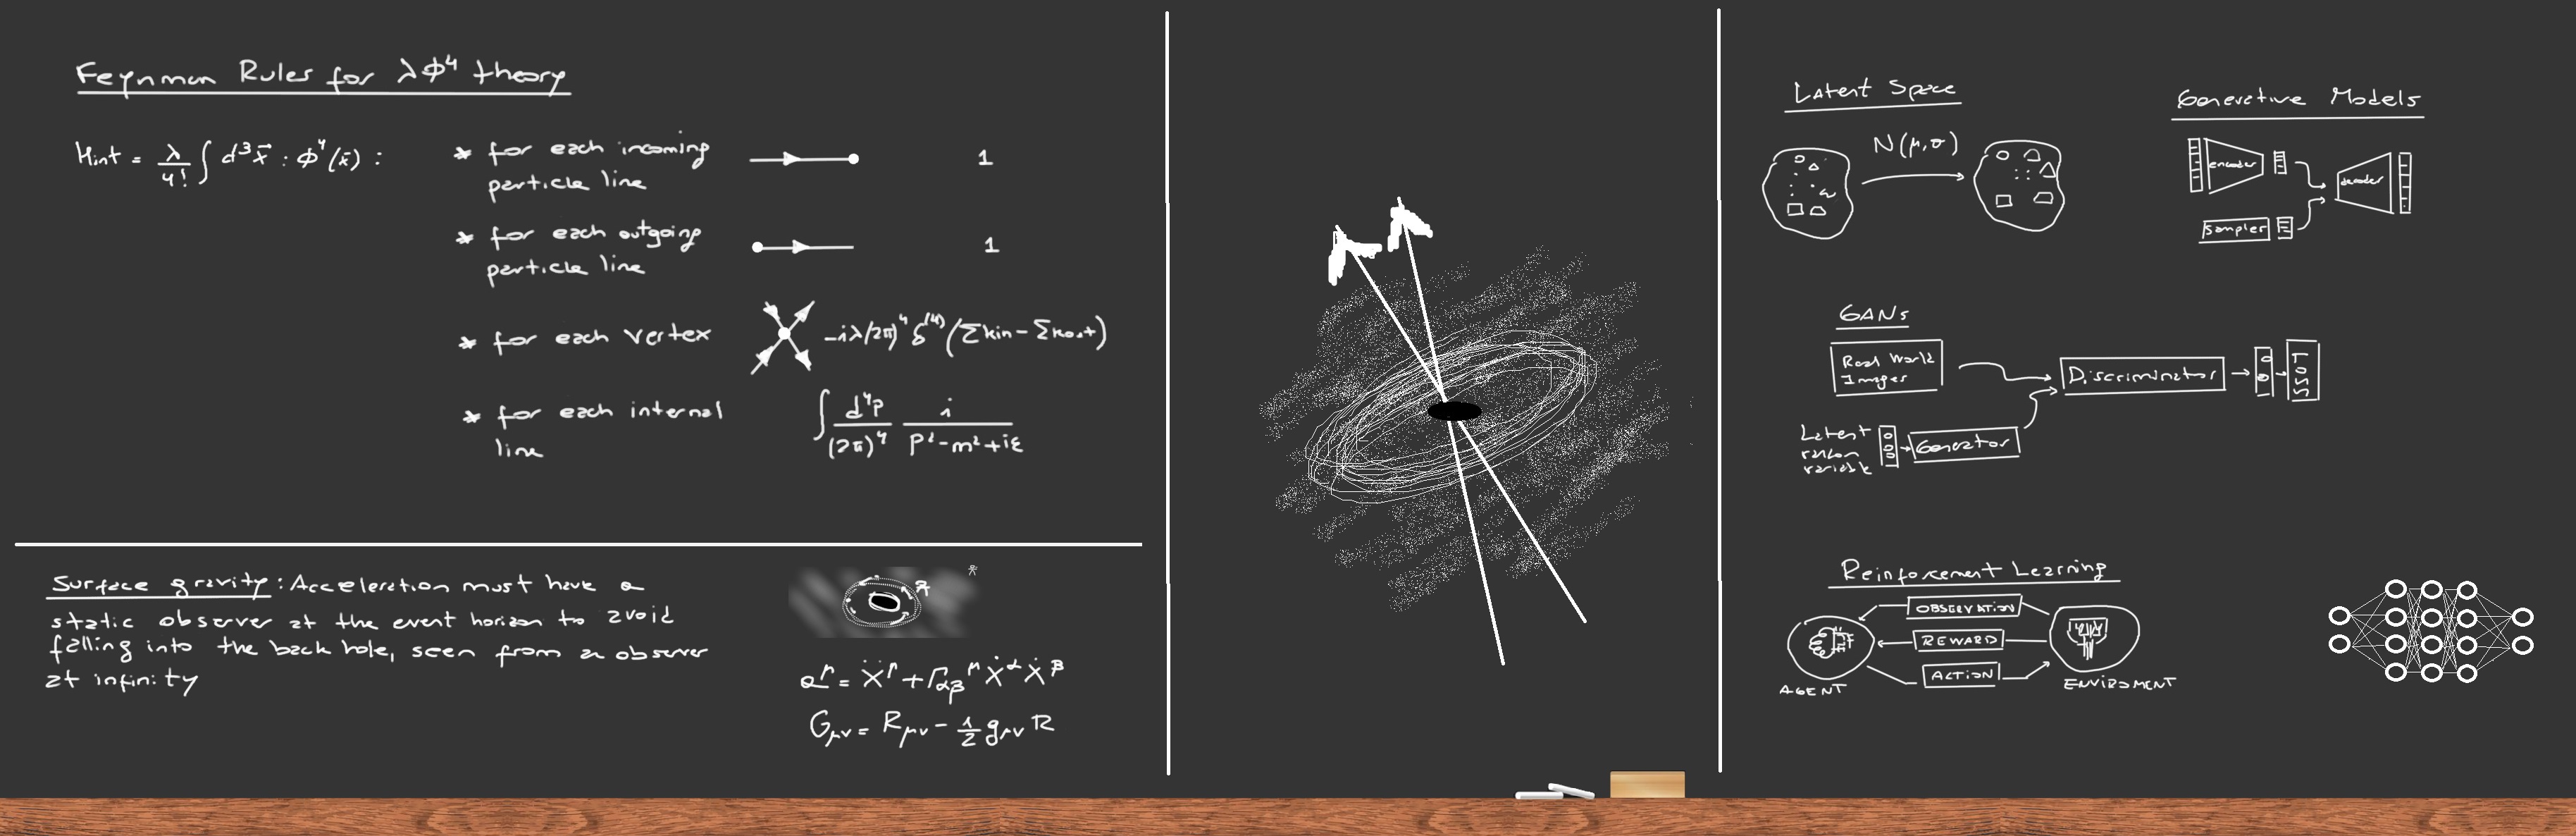 Feynman Rules for λΦ⁴ theory
Hint = λ/4! ∫ d³x⃗ : Φ⁴(x̄) :
* for each incoming
particle line
1
* for each outgoing
particle line
1
* for each vertex
-iλ(2π)⁴ δ⁽⁴⁾(Σkin - Σkout)
* for each internal
line
∫ d⁴p/(2π)⁴ i/(p²-m²+iε)
Surface gravity: Acceleration must have a
static observer at the event horizon to avoid
falling into the back hole, seen from a observer
at infinity
aᵘ = Ẍᵘ + Γαβᵘ Ẋᵅ Ẋᵝ
Gμν = Rμν - 1/2 gμν R
Latent Space
N(μ,σ)
Generative Models
encoder
decoder
sampler
GANs
Real World
Images
Discriminator
LOSS
Latent
random
variable
Generator
Reinforcement Learning
OBSERVATION
REWARD
ACTION
AGENT
ENVIROMENT